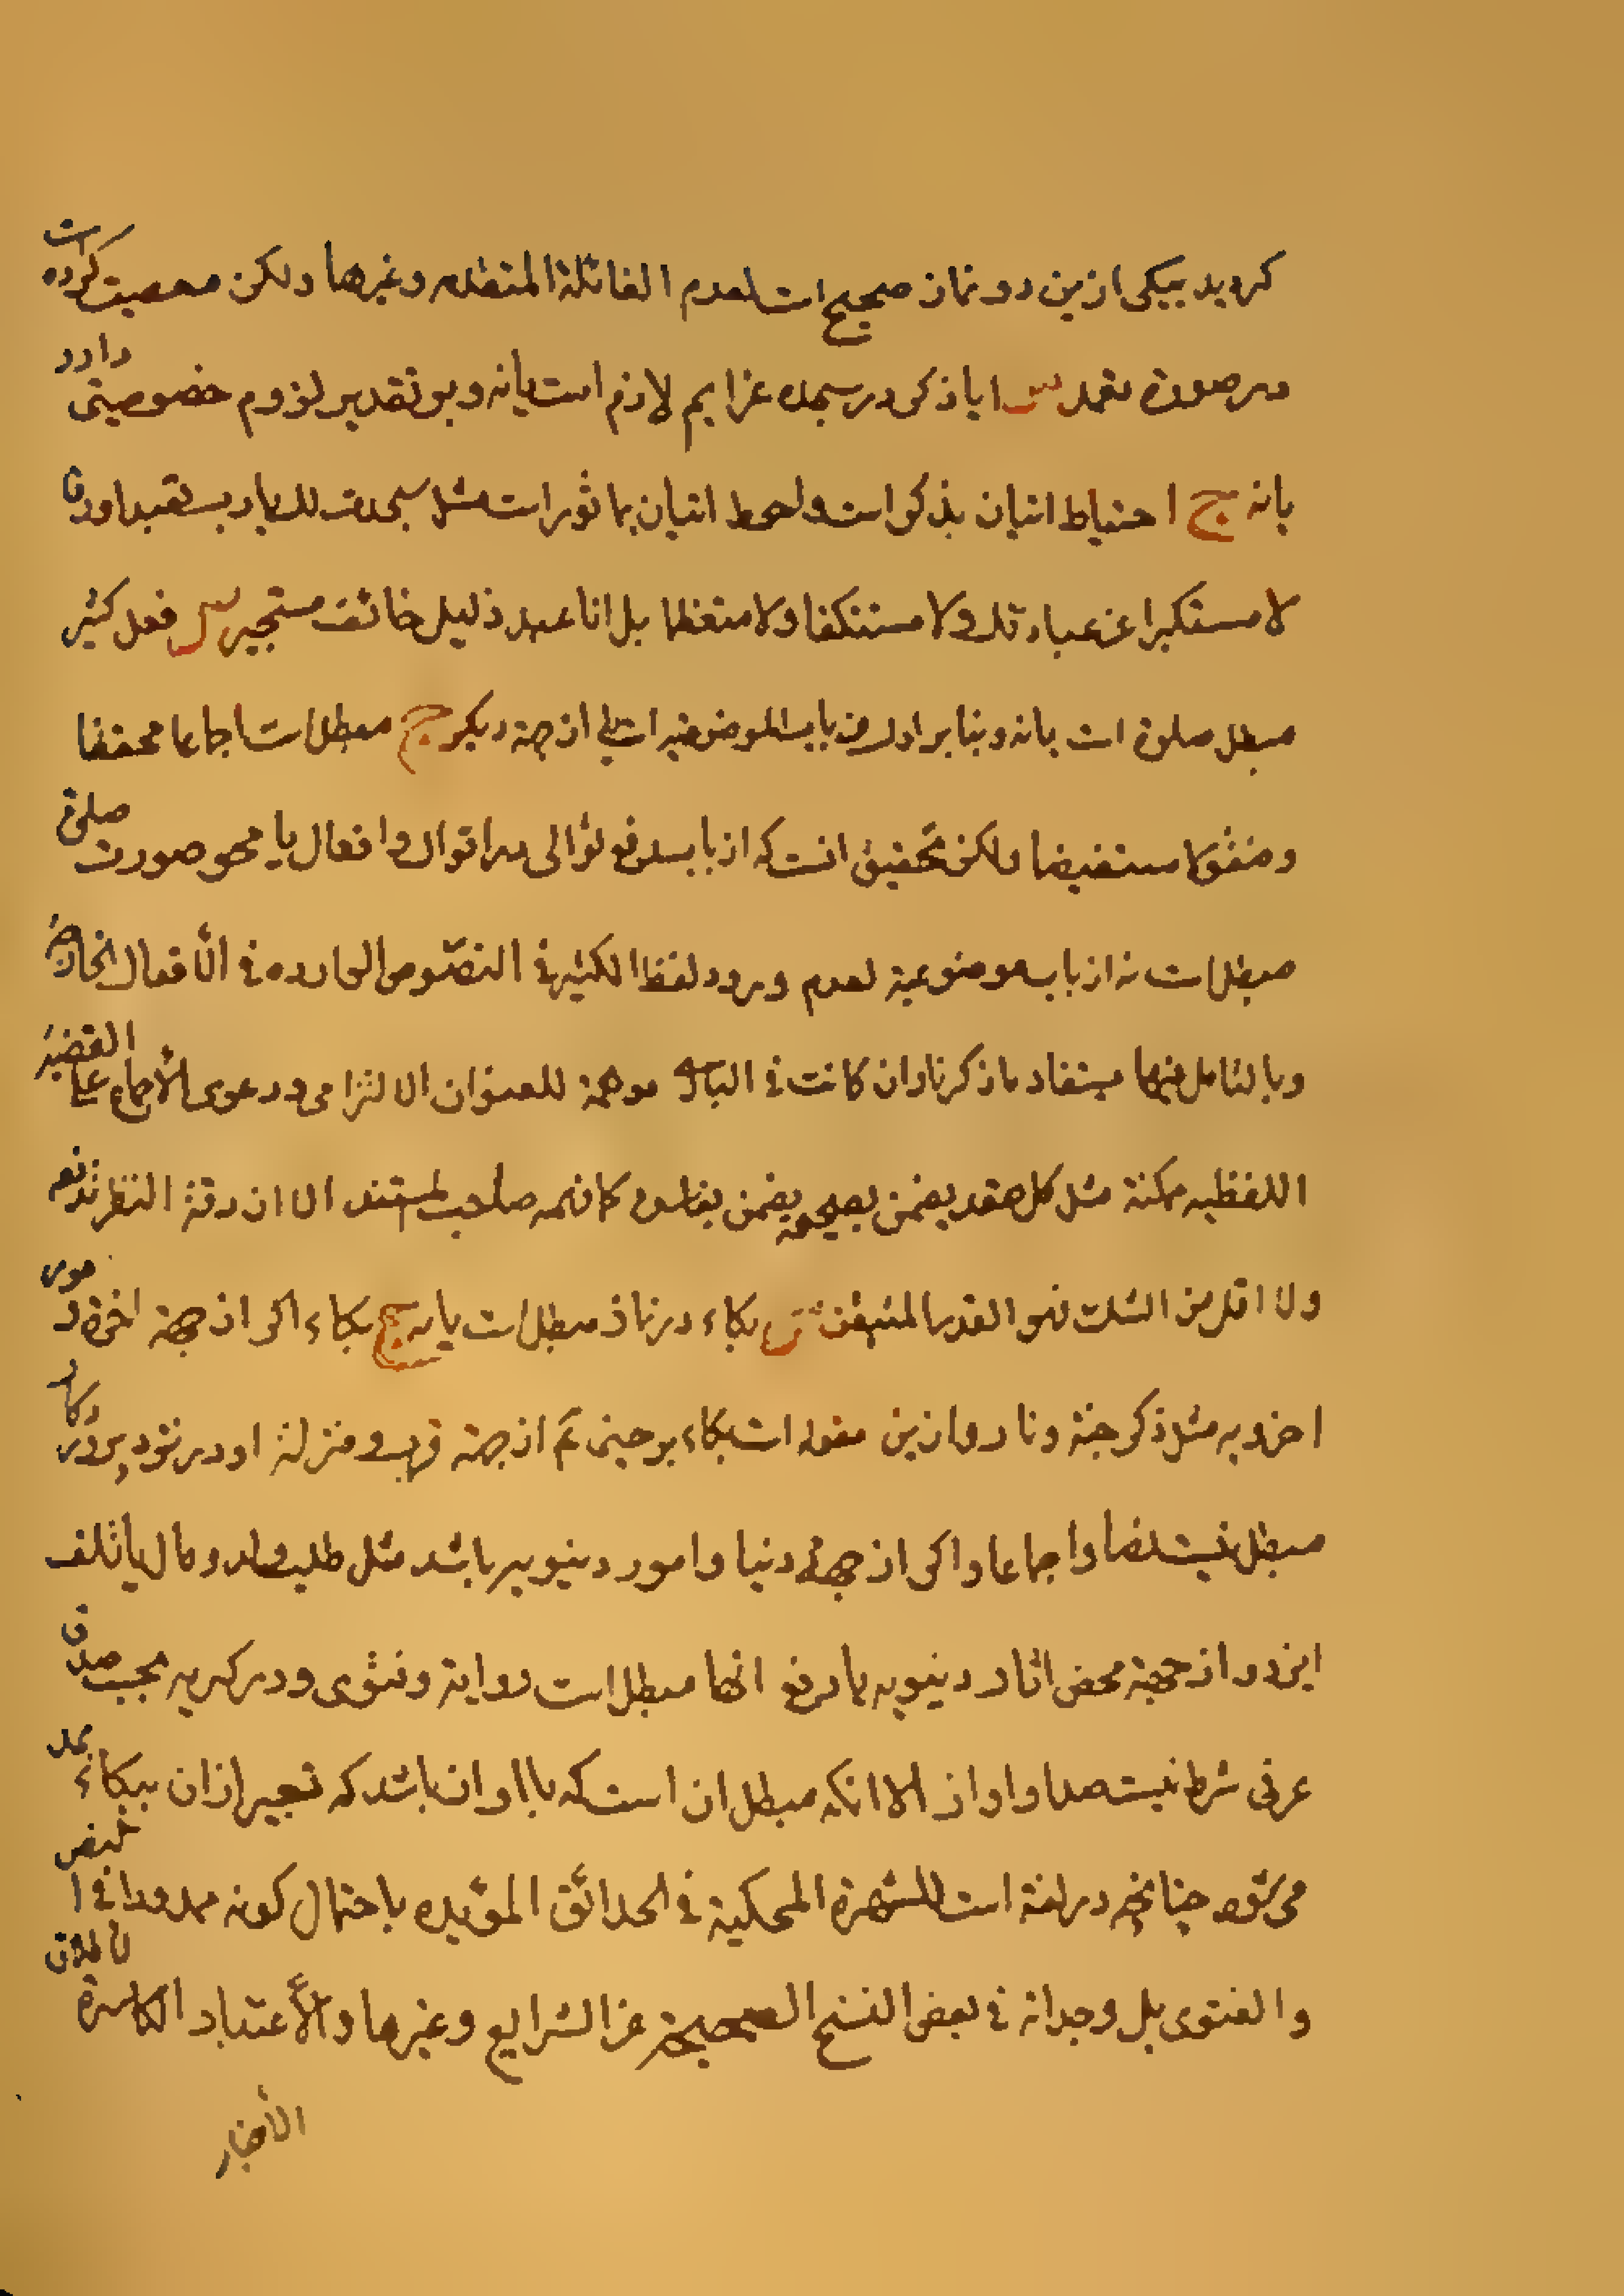 کردید بیکی ازین دو نماز صحیح است لعدم الغائلة المتقدمه وغیرها ولکن معصیت کرده است
در صورة تعمد س ایا ذکر در سجده عزایم لازم است یا نه و بر تقدیر لزوم خصوصیتی دارد
یا نه ج احتیاط اتیان بذکر است واحوط اتیان بماثور است مثل سجدت لك یا رب تعبدا ورقا
لا مستکبرا عن عبادتك ولا مستنکفا ولا متعظما بل انا عبد ذلیل خائف مستجیر س فعل کثیر
مبطل صلوة است یا نه و بنا بر اول من باب الموضوعیه است یا از جهة دیکر ج مبطل است اجماعا محققا
ومنقولا مستفیضا ولکن تحقیق انست که از باب رفع توالی در اقوال وافعال یا محو صورت صلوة
مبطل است نه از باب موضوعیة لعدم ورود لفظ الکثیر فی النصوص الوارده فی الأفعال الخارجیة
وبالتامل فیها یستفاد ما ذکرنا وان کانت فی البادی موهمة للعنوان الالتزامی ودعوی الأجماع علی القضیة
اللفظیه ممکنة مثل کل عقد یضمن بصحیحه یضمن بفاسده کما فهمه صاحب المستند الا ان دقة النظر تدفعه
ولا اقل من الشك فهو القدر المتیقن س بکاء در نماز مبطل است یا نه ج بکاء اکر از جهة اخرة و امور
اخرویه مثل ذکر جنة و نار و ازین مقوله است بکاء بر حینی تم از جهة قرب و منزلة او در نزد پروردکار
مبطل نیست نصا واجماعا و اکر از جهة دنیا و امور دنیویه باشد مثل طلب ولد و مال یا تلف
این دو از جهة محض اثار دنیویه یا رفع انها مبطل است روایة وفتوی و در کریه مجب صدق
عرفی شرط نیست صدا و اواز الا انکه مبطل ان است که با اوان باشد که تعبیر ازان ببکاء بمد
می شود چنانچه در لغة است للشهرة المحکیة فی الحدائق المؤیده باحتمال کونه ممدودا فی النص
والفتوی بل وجدانه فی بعض النسخ الصحیحة عن الشرایع وغیرها والأعتبار الکاسرة لاطلاق
الأخبار